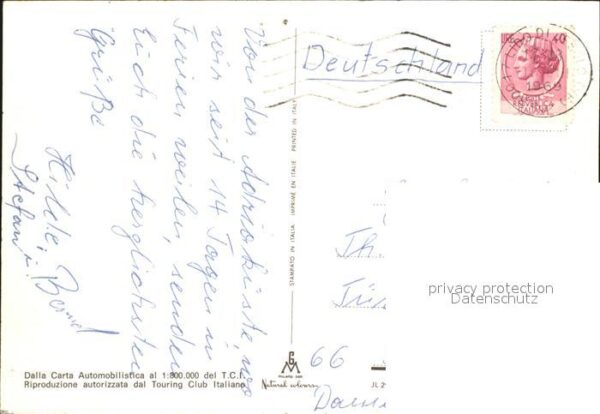 Von der Adriaküste, wo
wir seit 14 Tagen in
Ferien weilen, senden
Euch die herzlichsten
Grüße
Hilde, Bernd
Stefan
Deutschland
40
1968
STAMPATO IN ITALIA IMPRIMÉ EN ITALIE PRINTED IN ITALY
Th
66
privacy protection
Datenschutz
Dalla Carta Automobilistica al 1:800.000 del T.C.I.
Riproduzione autorizzata dal Touring Club Italiano
Natural colour